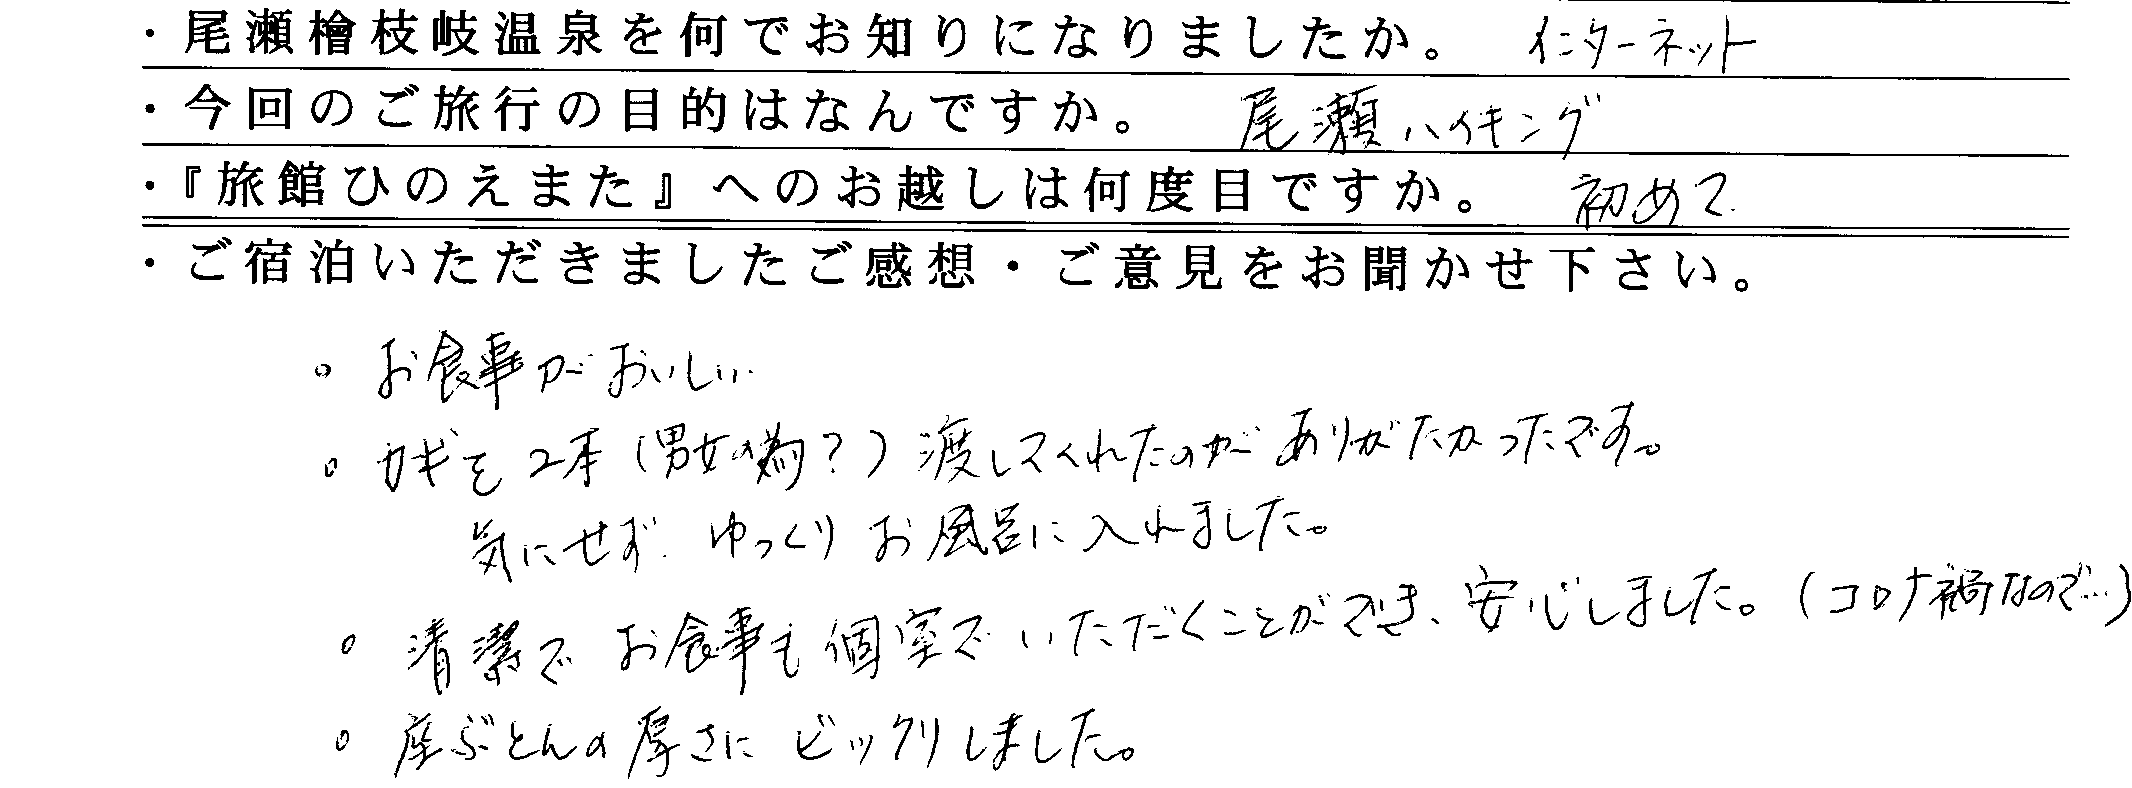 ・尾瀬檜枝岐温泉を何でお知りになりましたか。 インターネット
・今回のご旅行の目的はなんですか。 尾瀬ハイキング
・『旅館ひのえまた』へのお越しは何度目ですか。 初めて
・ご宿泊いただきましたご感想・ご意見をお聞かせ下さい。
。お食事がおいしい
。カギを2本(男女の為?)渡してくれたのがありがたかったです。
気にせず ゆっくりお風呂に入れました。
。清潔で お食事も個室でいただくことができ、安心しました。(コロナ禍なので…)
。座ぶとんの厚さに ビックリしました。